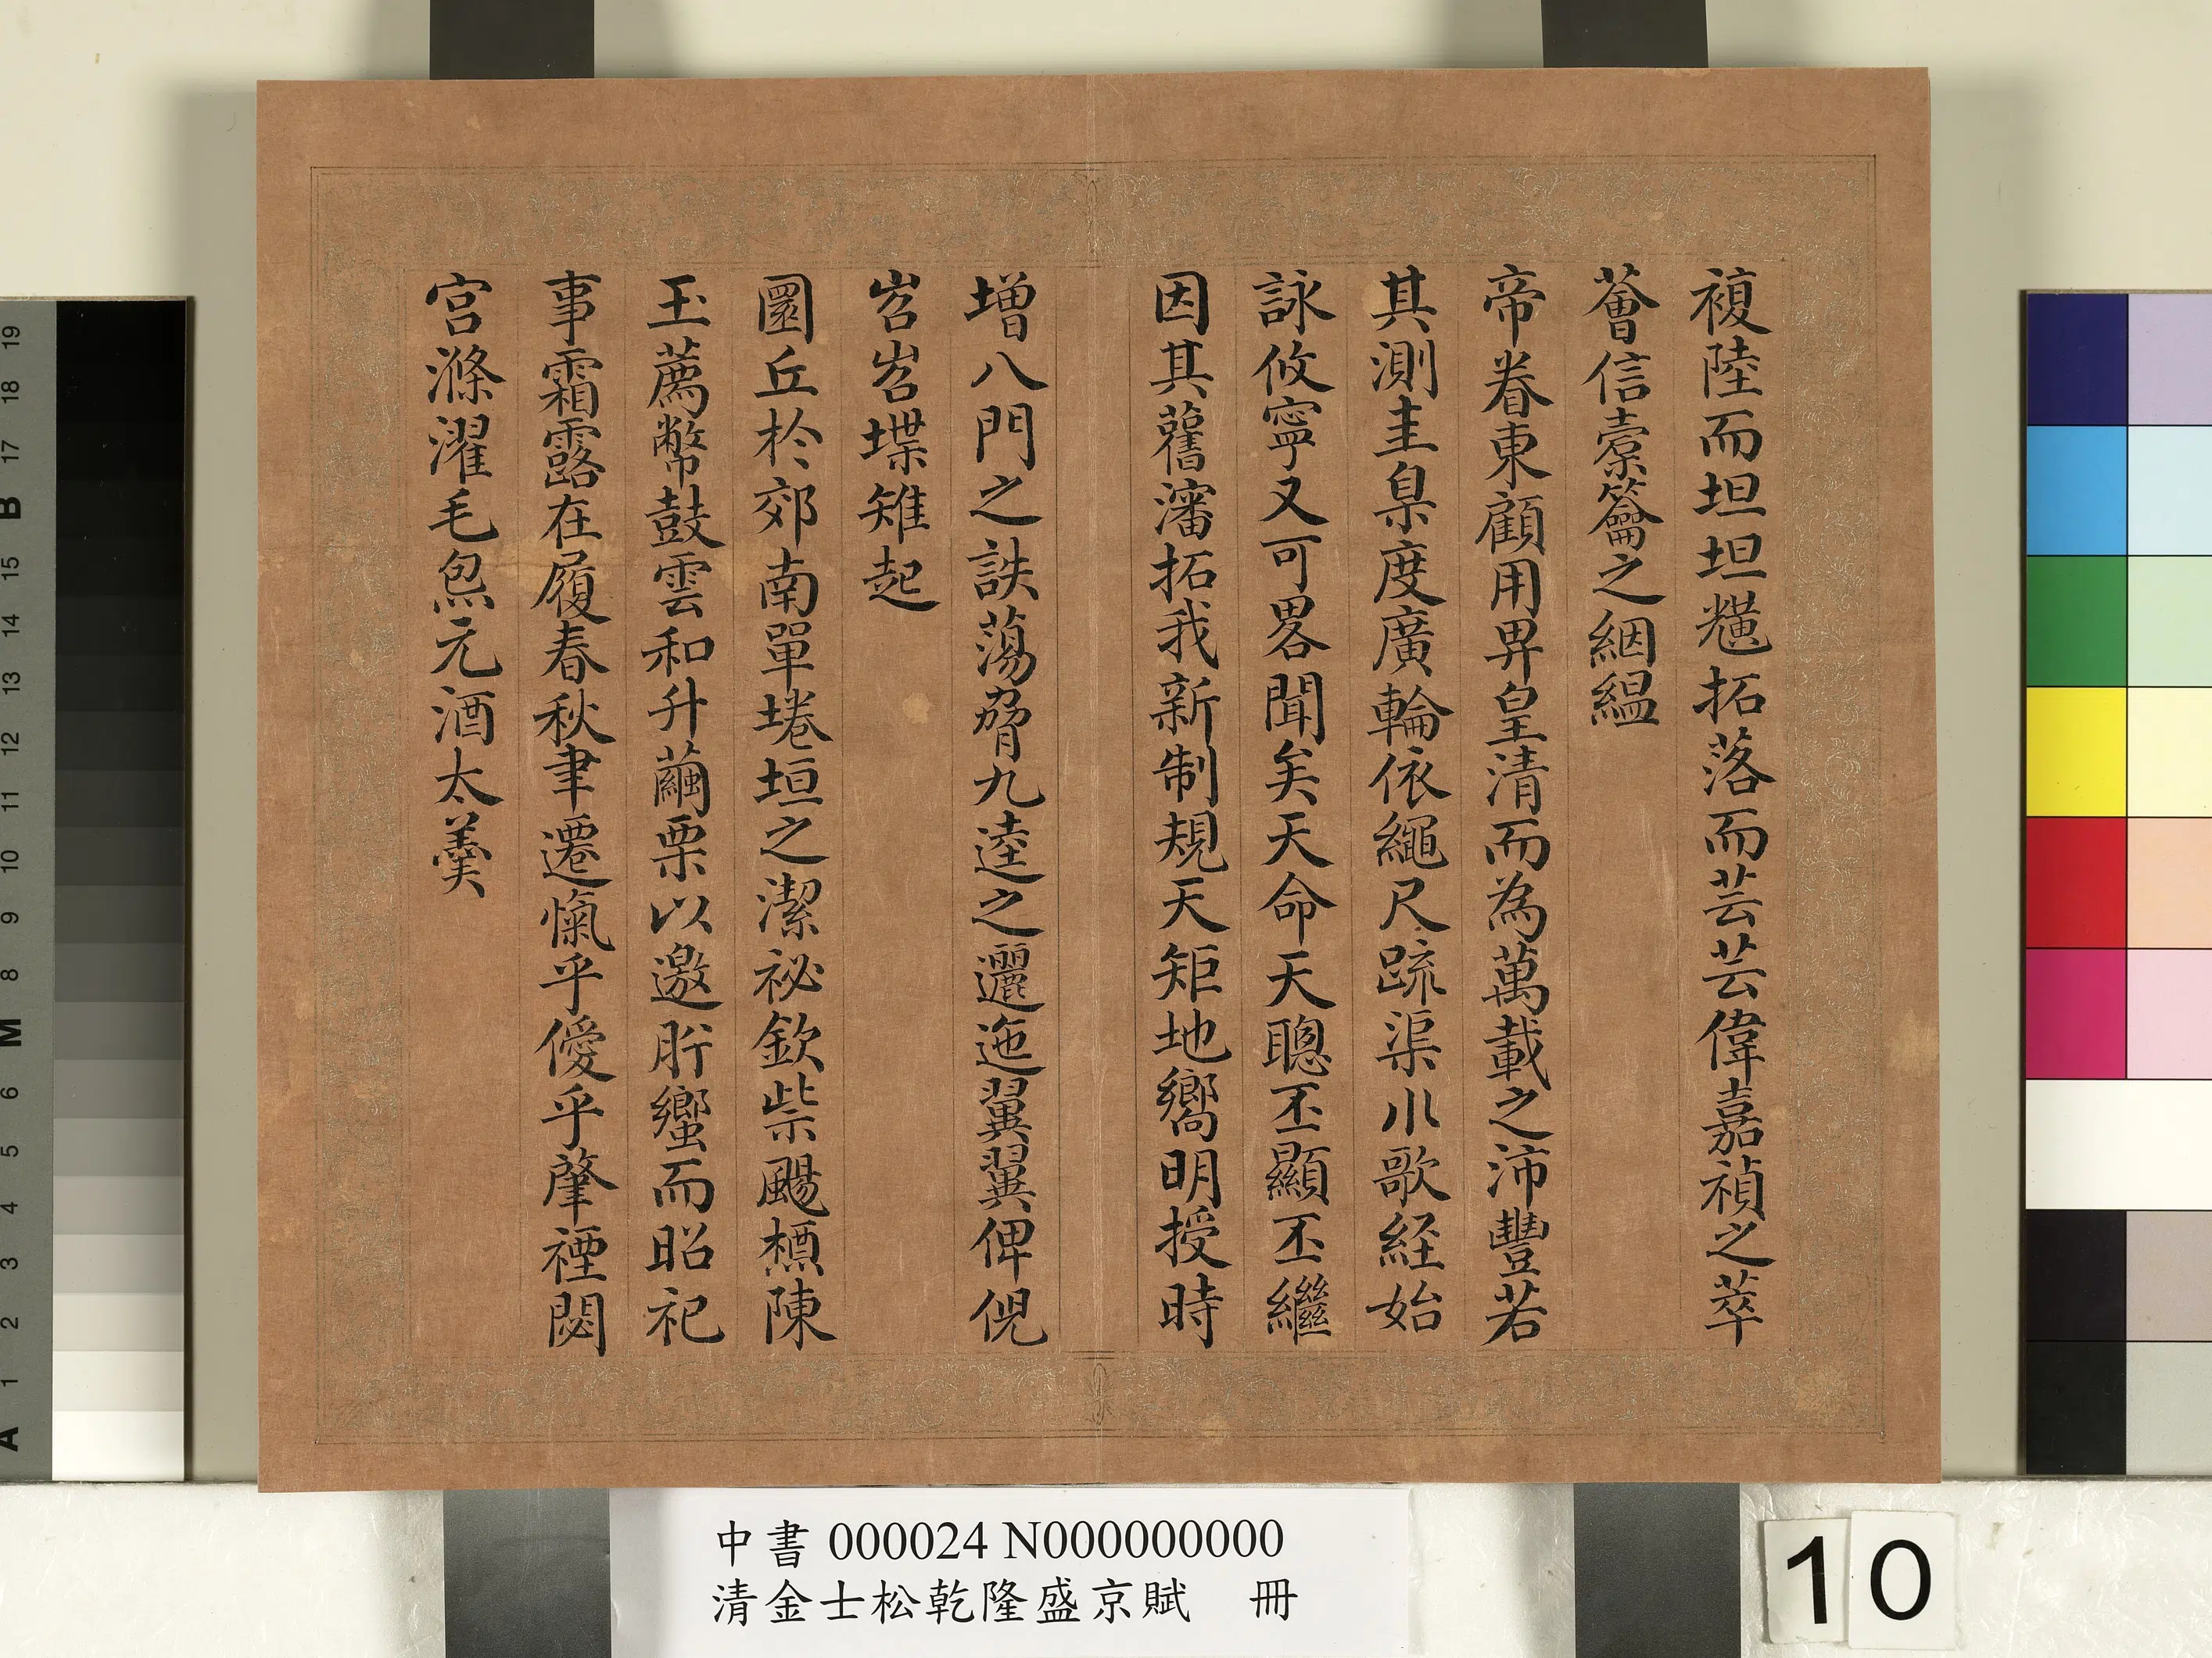 複陸而坦坦爌拓落而芸芸偉嘉禎之萃
薈信橐籥之絪縕
帝眷東顧用畀皇清而為萬載之沛豐若
其測圭臬度廣輪依繩尺疏渠水歌経始
詠攸寧又可畧聞矣天命天聰丕顯丕繼
因其舊瀋拓我新制規天矩地嚮明授時
增八門之詄蕩脅九逵之邐迤翼翼俾倪
岧岧堞雉起
圜丘於郊南單埢垣之潔祕欽柴颺槱陳
玉薦幣鼓雲和升繭栗以邀肸蠁而昭祀
事霜露在履春秋聿遷愾乎僾乎肇禋閟
宮滌濯毛炰元酒太羹
中書 000024 N000000000
清金士松乾隆盛京賦　冊
10
19
18
17
B
15
14
13
12
11
10
9
8
M
6
5
4
3
2
1
A